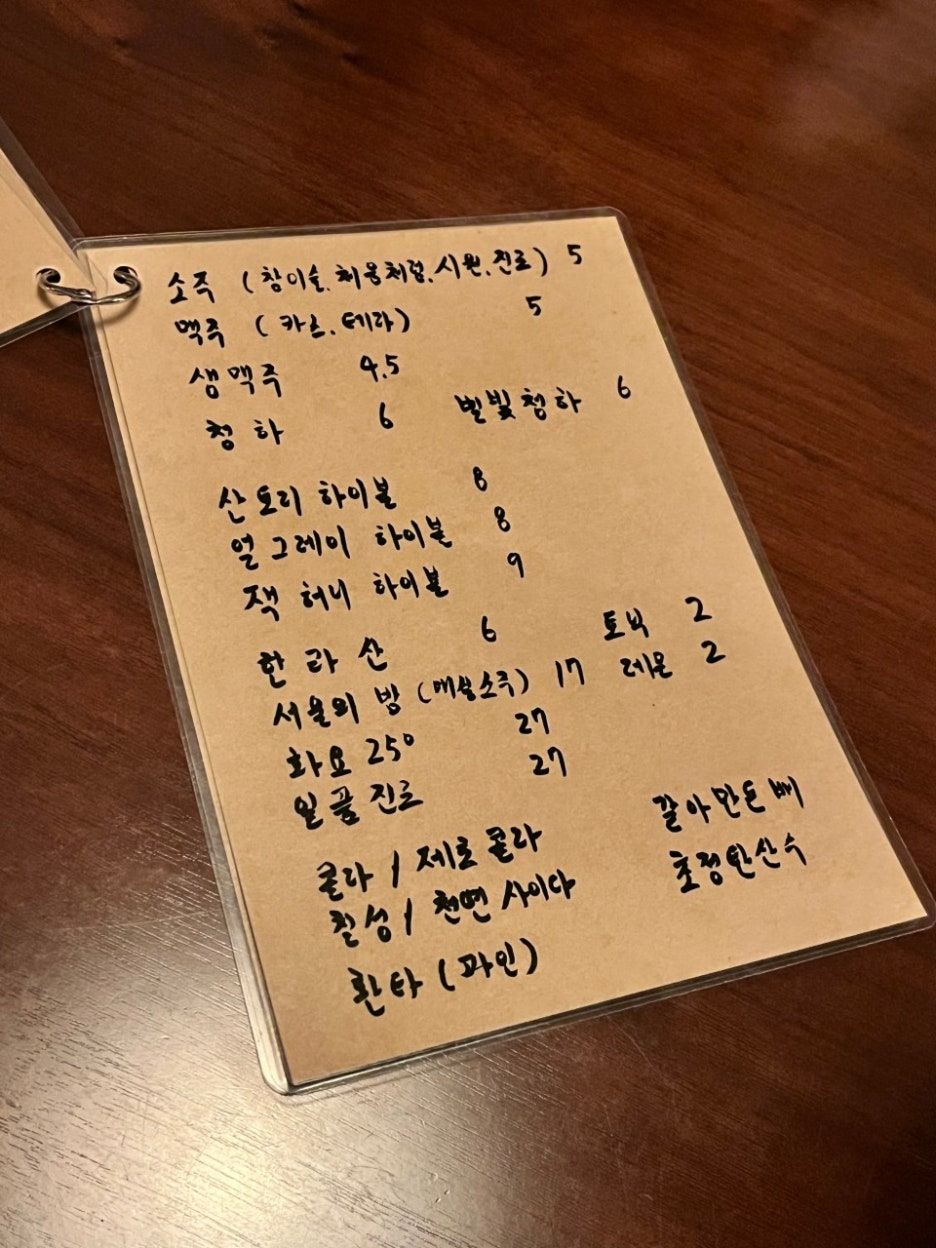 소주 (참이슬.처음처럼.시원.진로) 5
맥주 (카스.테라) 5
생맥주 4.5
청하 6 별빛청하 6
산토리 하이볼 8
얼그레이 하이볼 8
잭 허니 하이볼 9
한라산 6 토닉 2
서울의 밤 (매실소주) 17 레몬 2
화요 25° 27
일품진로 27
콜라 / 제로콜라 갈아만든배
칠성 / 천연사이다 초정탄산수
환타 (파인)